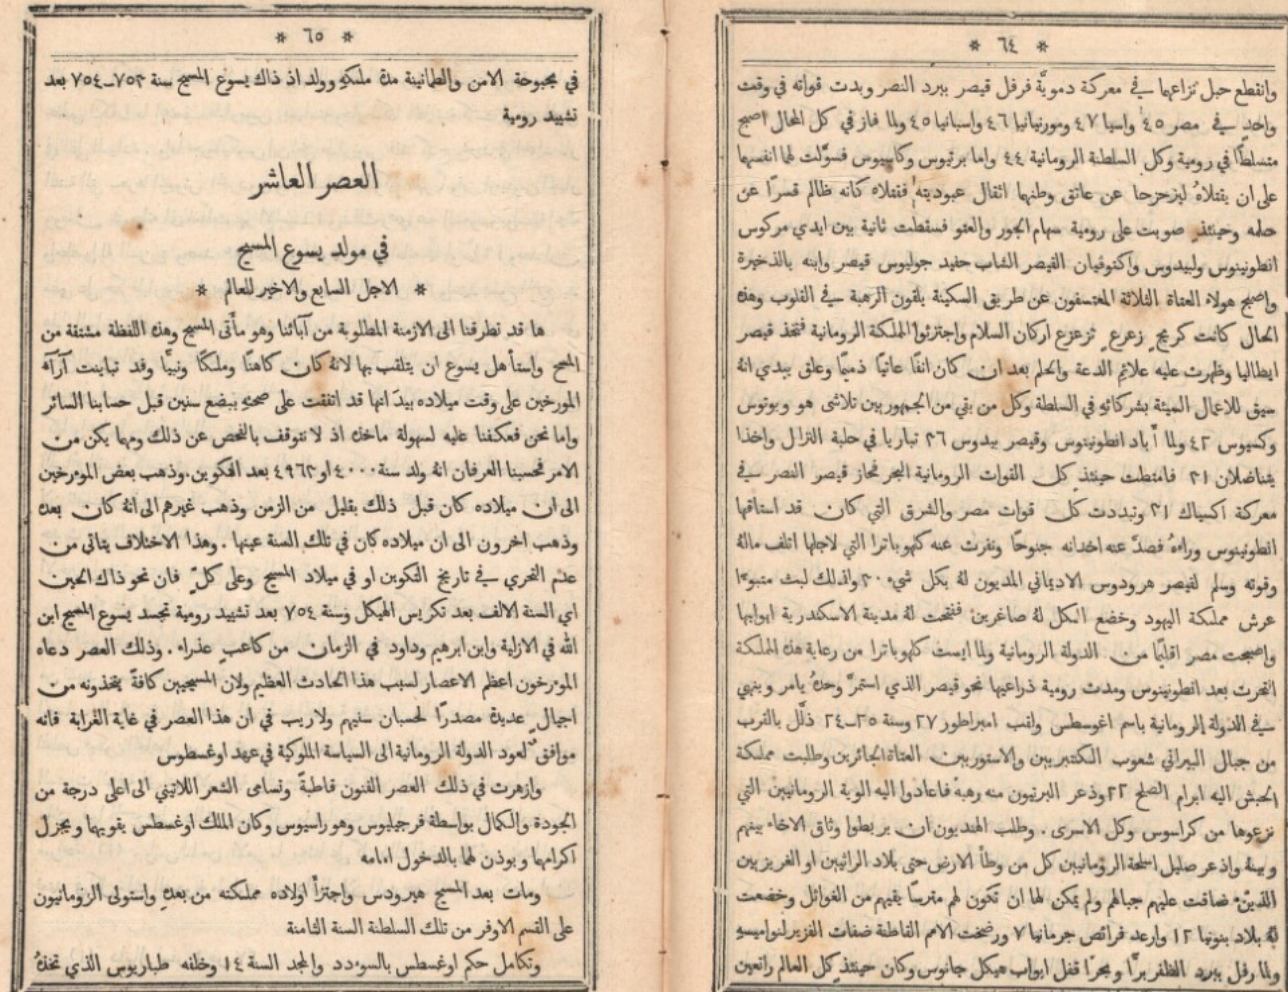 * ٦٤ *
وانقطع حبل نزاعها في معركة دمويَّة فرفل قيصر ببرد النصر وبدت قواته في وقت
واحدٍ في مصر ٤٥ واسيا ٤٧ ومورتيانيا ٤٦ واسبانيا ٤٥ ولما فاز في كل المحال اصبح
متسلطًا في رومية وكل السلطنة الرومانية ٤٤ واما برتيوس وكاسيوس فسوَّلت لهما انفسهما
على ان يقتلاهُ ليزحزحا عن عاتق وطنهما اثقال عبوديته فقتلاه كانه ظالم قسرًا عن
حلمه وحينئذٍ صوبت على رومية سهام الجور والعتو فسقطت ثانية بين ايدي مركوس
انطونينوس ولبيدوس واكتوفيان القيصر الشاب حفيد جوليوس قيصر وابنه بالذخيرة
واصبح هولاء العتاة الثلاثة المعتسفون عن طريق السكينة يلقون الرهبة في القلوب وهذه
الحال كانت كريحٍ زعزعٍ تزعزع اركان السلام واجتزئوا المملكة الرومانية فتخذ قيصر
ايطاليا وظهرت عليه علائم الدعة والحلم بعد ان كان انفًا عاتيًا ذميًا وعلق يبدي انهُ
سيق للاعمال الميتة بشركائهِ في السلطة وكل من بقي من الجمهوريين تلاشى هو وبوتوس
وكسيوس ٤٢ ولما اباد انطونينوس وقيصر بيدوس ٣٦ تباريا في حلبة النزال واخذا
يتناضلان ٣١ فامتطت حينئذٍ كل القوات الرومانية البحر فحاز قيصر النصر في
معركة اكسياك ٣١ وتبددت كل قوات مصر والشرق التي كان قد استاقها
انطونينوس وراءهُ فصدَّ عنه اخدانه جنوحًا ونفرت عنه كلهوباترا التي لاجلها اتلف مالهُ
وقوته وسلم لقيصر هرودوس الاديماني المديون لهُ بكل شيء ٣٠ ولذلك لبث متبوءا
عرش مملكة اليهود وخضع الكل لهُ صاغرين ففتحت لهُ مدينة الاسكندرية ابوابها
واصبحت مصر اقليمًا من الدولة الرومانية ولما ايست كلهوباترا من رعاية هذه المملكة
انتحرت بعد انطونينوس ومدت رومية ذراعيها نحو قيصر الذي استمرَّ وحدهُ يامر وينهي
في الدولة الرومانية باسم اغوسطس ولقب امبراطور ٢٧ وسنة ٢٥ــ٢٤ ذلَّل بالقرب
من جبال البيراني شعوب الكنتبريين والاستوريين العتاة الجائرين وطلبت مملكة
الحبش اليه ابرام الصلح ٢٢ وذعر البرتيون منه رهبةً فاعادوا اليه الوية الرومانيين التي
نزعوها من كراسوس وكل الاسرى. وطلب الهنديون ان يربطوا وثاق الاخاء بينهم
وبينهُ واذعر صليل اسلحة الرومانيين كل من وطأ الارض حتى بلاد الراثيين او الغريزيين
اللذين ضاقت عليهم جبالهم ولم يمكن لها ان تكون لهم مترسًا يقيهم من الغوائل وخضعت
لهُ بلاد بنونيا ١٢ وارعد فرائص جرمانيا ٧ ورضخت الامم القاطنة ضفات الفزير لنواميسهِ
ولما رفل ببرد الظفر برًّا وبحرًا قفل ابواب هيكل جانوس وكان حينئذٍ كل العالم راتعين
* ٦٥ *
في بحبوحة الامن والطمانينة مدة ملكهِ وولد اذ ذاك يسوع المسيح سنة ٧٥٣ــ٧٥٤ بعد
تشييد رومية
العصر العاشر
في مولد يسوع المسيح
* الاجل السابع والاخير للعالم *
ها قد تطرقنا الى الازمنة المطلوبة من آبائنا وهو مأتى المسيح وهذه اللفظة مشتقة من
المسح واستأهل يسوع ان يتلقب بها لانهُ كان كاهنًا وملكًا ونبيًّا وقد تباينت آرآء
المورخين على وقت ميلاده بيدَ انها قد اتفقت على صحتهِ ببضع سنين قبل حسابنا السائر
واما نحن فعكفنا عليه لسهولة ماخذه اذ لا نتوقف بالفحص عن ذلك ومهما يكن من
الامر فحسبنا العرفان انهُ ولد سنة ٤٠٠٠ او ٤٩٦٣ بعد التكوين. وذهب بعض المورخين
الى ان ميلاده كان قبل ذلك بقليل من الزمن وذهب غيرهم الى انهُ كان بعده
وذهب اخرون الى ان ميلاده كان في تلك السنة عينها. وهذا الاختلاف يتاتى من
عدم التحري في تاريخ التكوين او في ميلاد المسيح وعلى كلٍّ فان نحو ذاك الحين
اي السنة الالف بعد تكريس الهيكل وسنة ٧٥٤ بعد تشييد رومية تجسد يسوع المسيح ابن
الله في الازلية وابن ابرهيم وداود في الزمان من كاعب عذراء. وذلك العصر دعاه
المورخون اعظم الاعصار لسبب هذا الحادث العظيم ولان المسيحيين كافةً يتخذونه من
اجيالٍ عديدة مصدرًا لحسبان سنيهم ولا ريب في ان هذا العصر في غاية الغرابة فانه
موافق لعود الدولة الرومانية الى السياسة الملوكية في عهد اوغسطوس
وازهرت في ذلك العصر الفنون قاطبةً وتسامى الشعر اللاتيني الى اعلى درجة من
الجودة والكمال بواسطة فرجيليوس وهوراسيوس وكان الملك اوغسطس يقويهما ويجزل
اكرامهما ويوذن لهما بالدخول امامه
ومات بعد المسيح هيرودس واجتزأ اولاده مملكته من بعدهِ واستولى الرومانيون
على القسم الاوفر من تلك السلطنة السنة الثامنة
وتكامل حكم اوغسطس بالسودد والمجد السنة ١٤ وخلفه طباريوس الذي تخذهُ